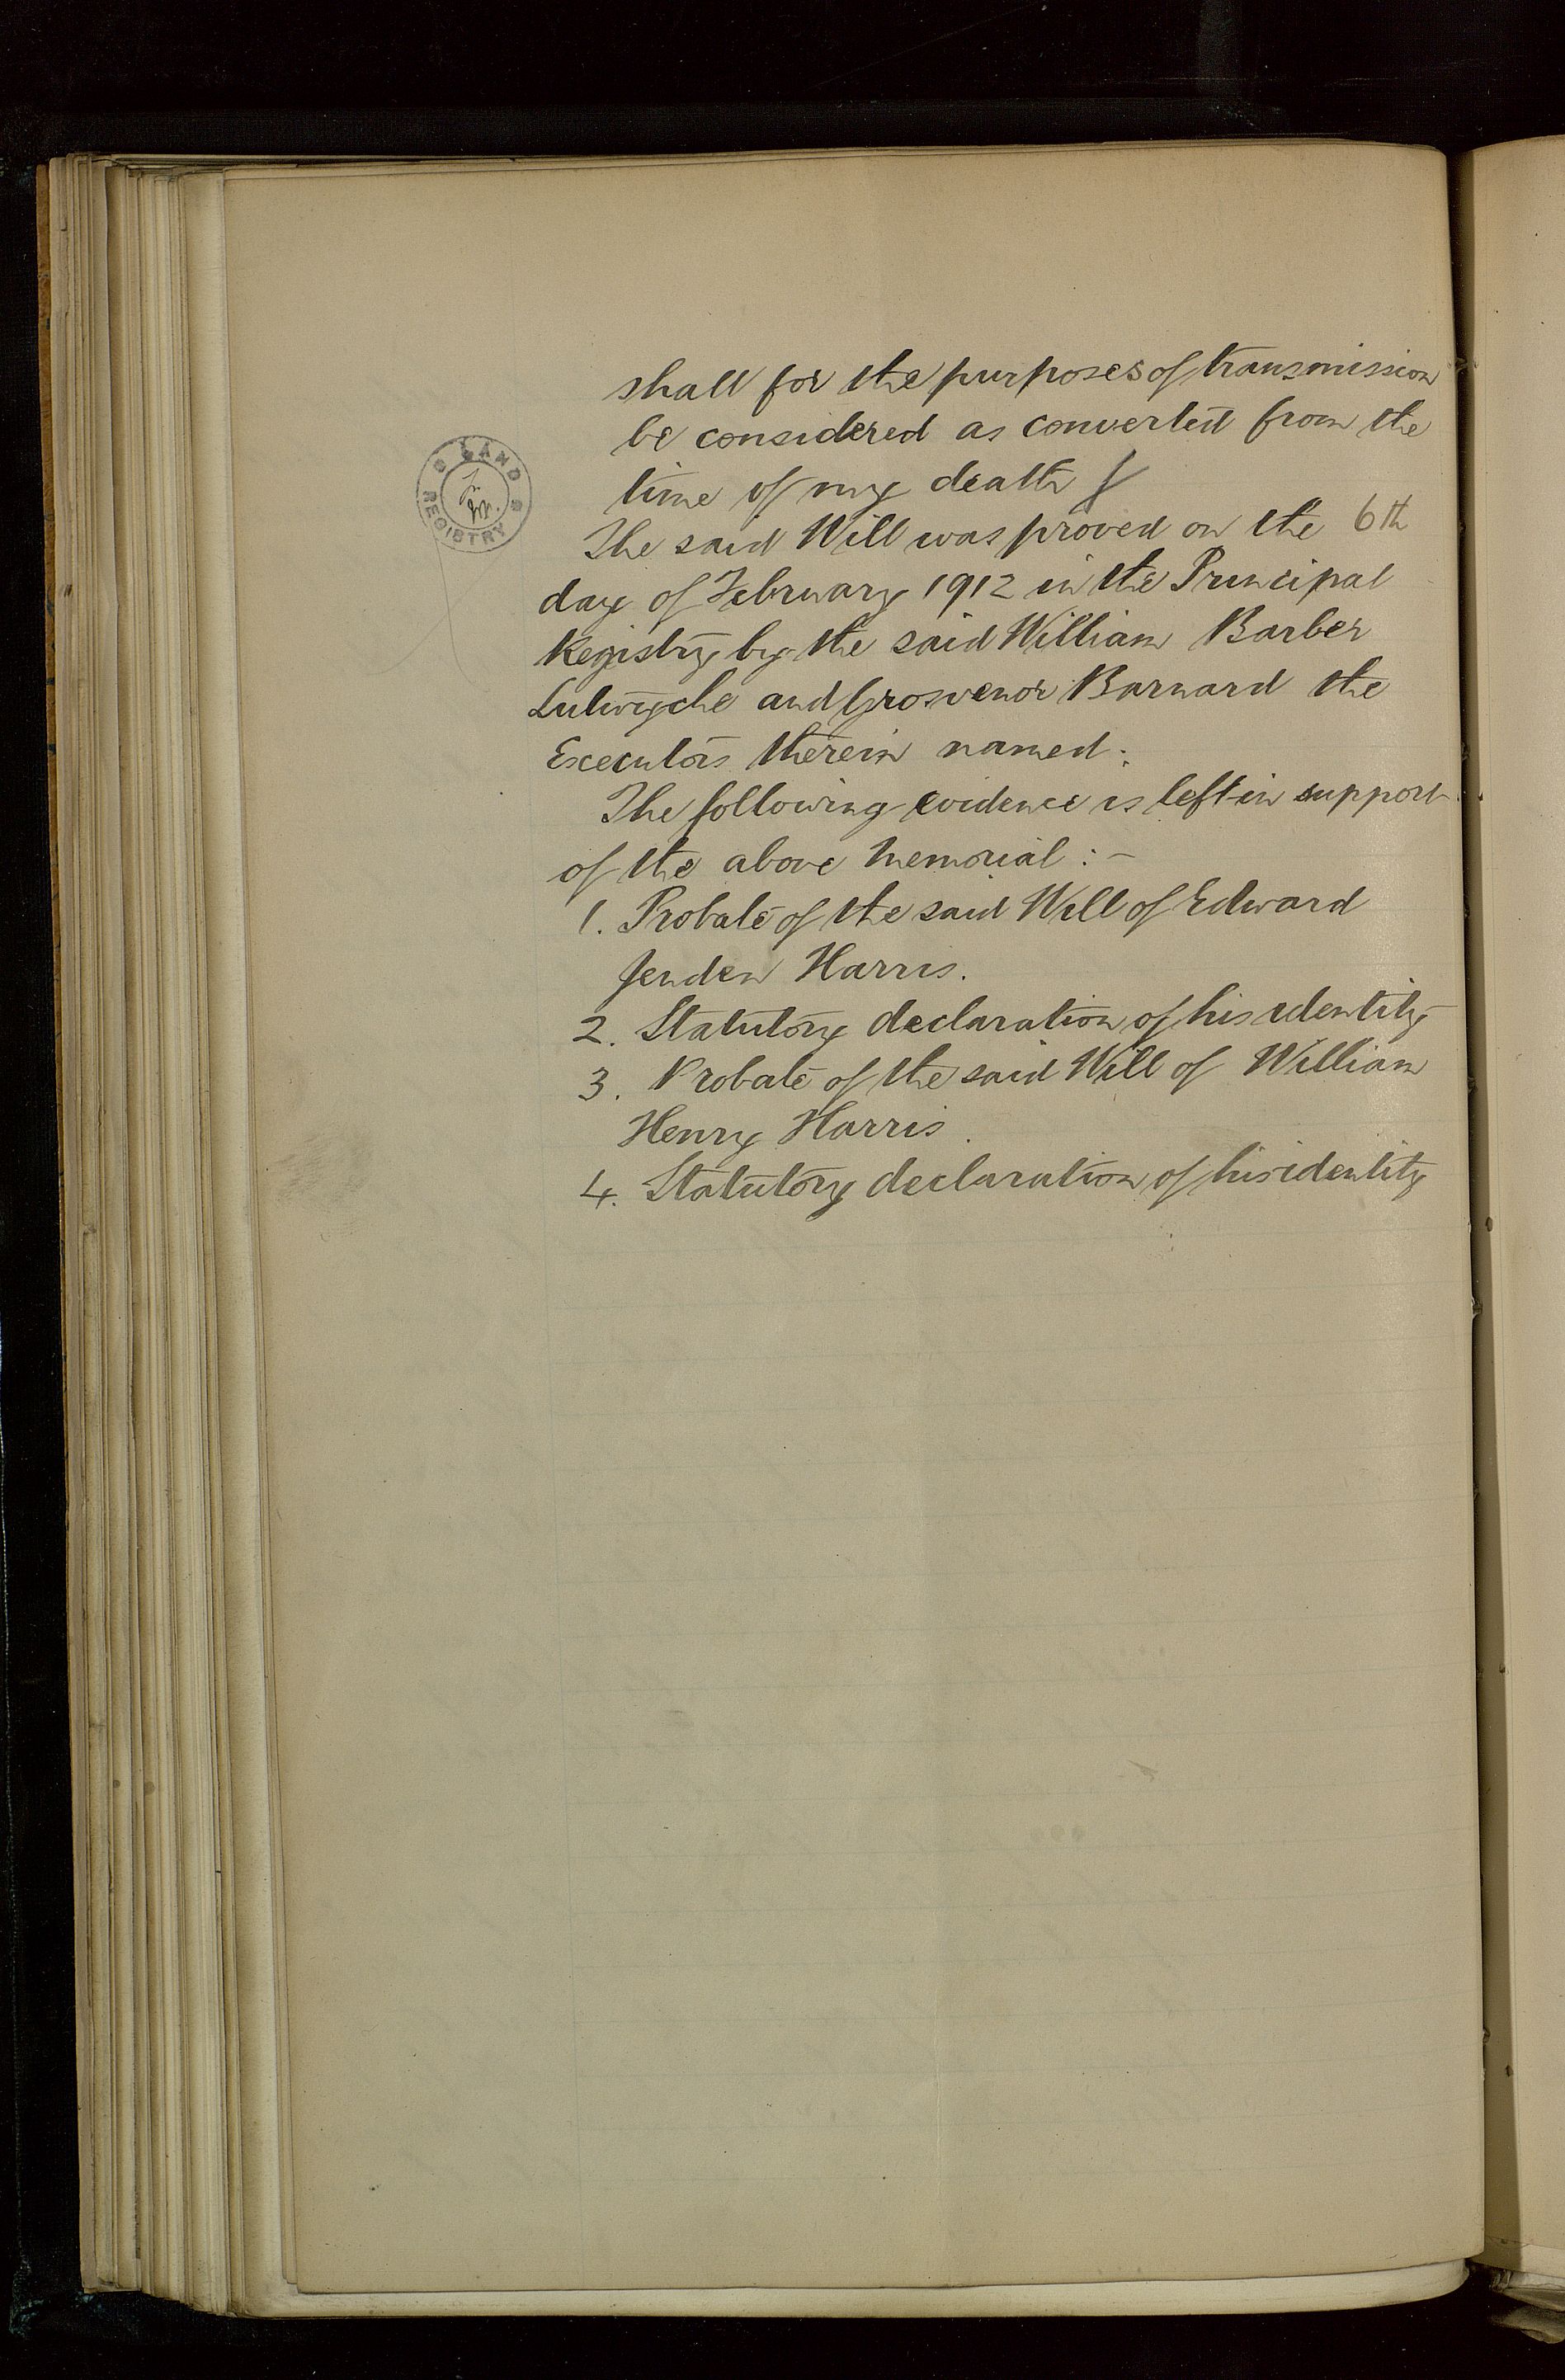 shall for the purposes of transmission
be considered as converted from the
time of my death
The said Will was proved on the 6th
day of February 1912 in the Principal
Registry by the said William Barber
Lulwyche and Grosvenor Barnard the
Executors therein named:
The following evidence is left in support
of the above Memorial :-
1. Probate of the said Will of Edward
Jenden Harris.
2. Statutory declaration of his identity
3. Probate of the said Will of William
Henry Harris.
4. Statutory declaration of his identity
LAND
REGISTRY